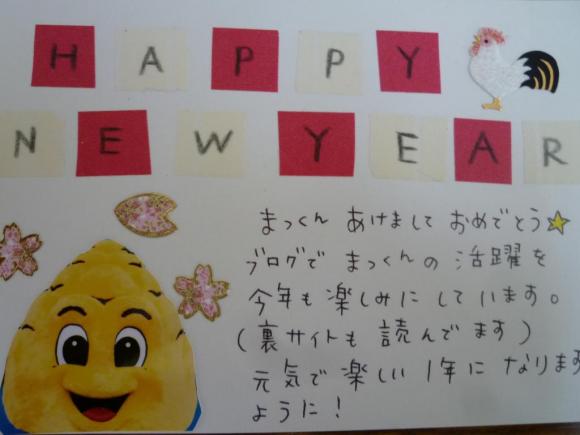 HAPPY
NEW YEAR
まっくん あけまして おめでとう☆
ブログで まっくんの 活躍を
今年も 楽しみに しています。
(裏サイトも 読んでます)
元気で 楽しい 1年に なります
ように!